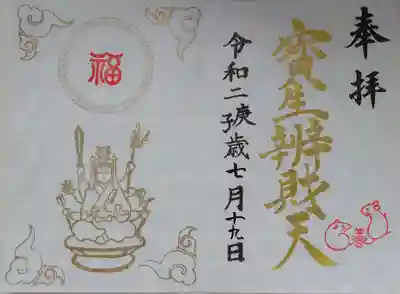 奉拝
寳生辨財天
令和二庚子歳七月十九日
福